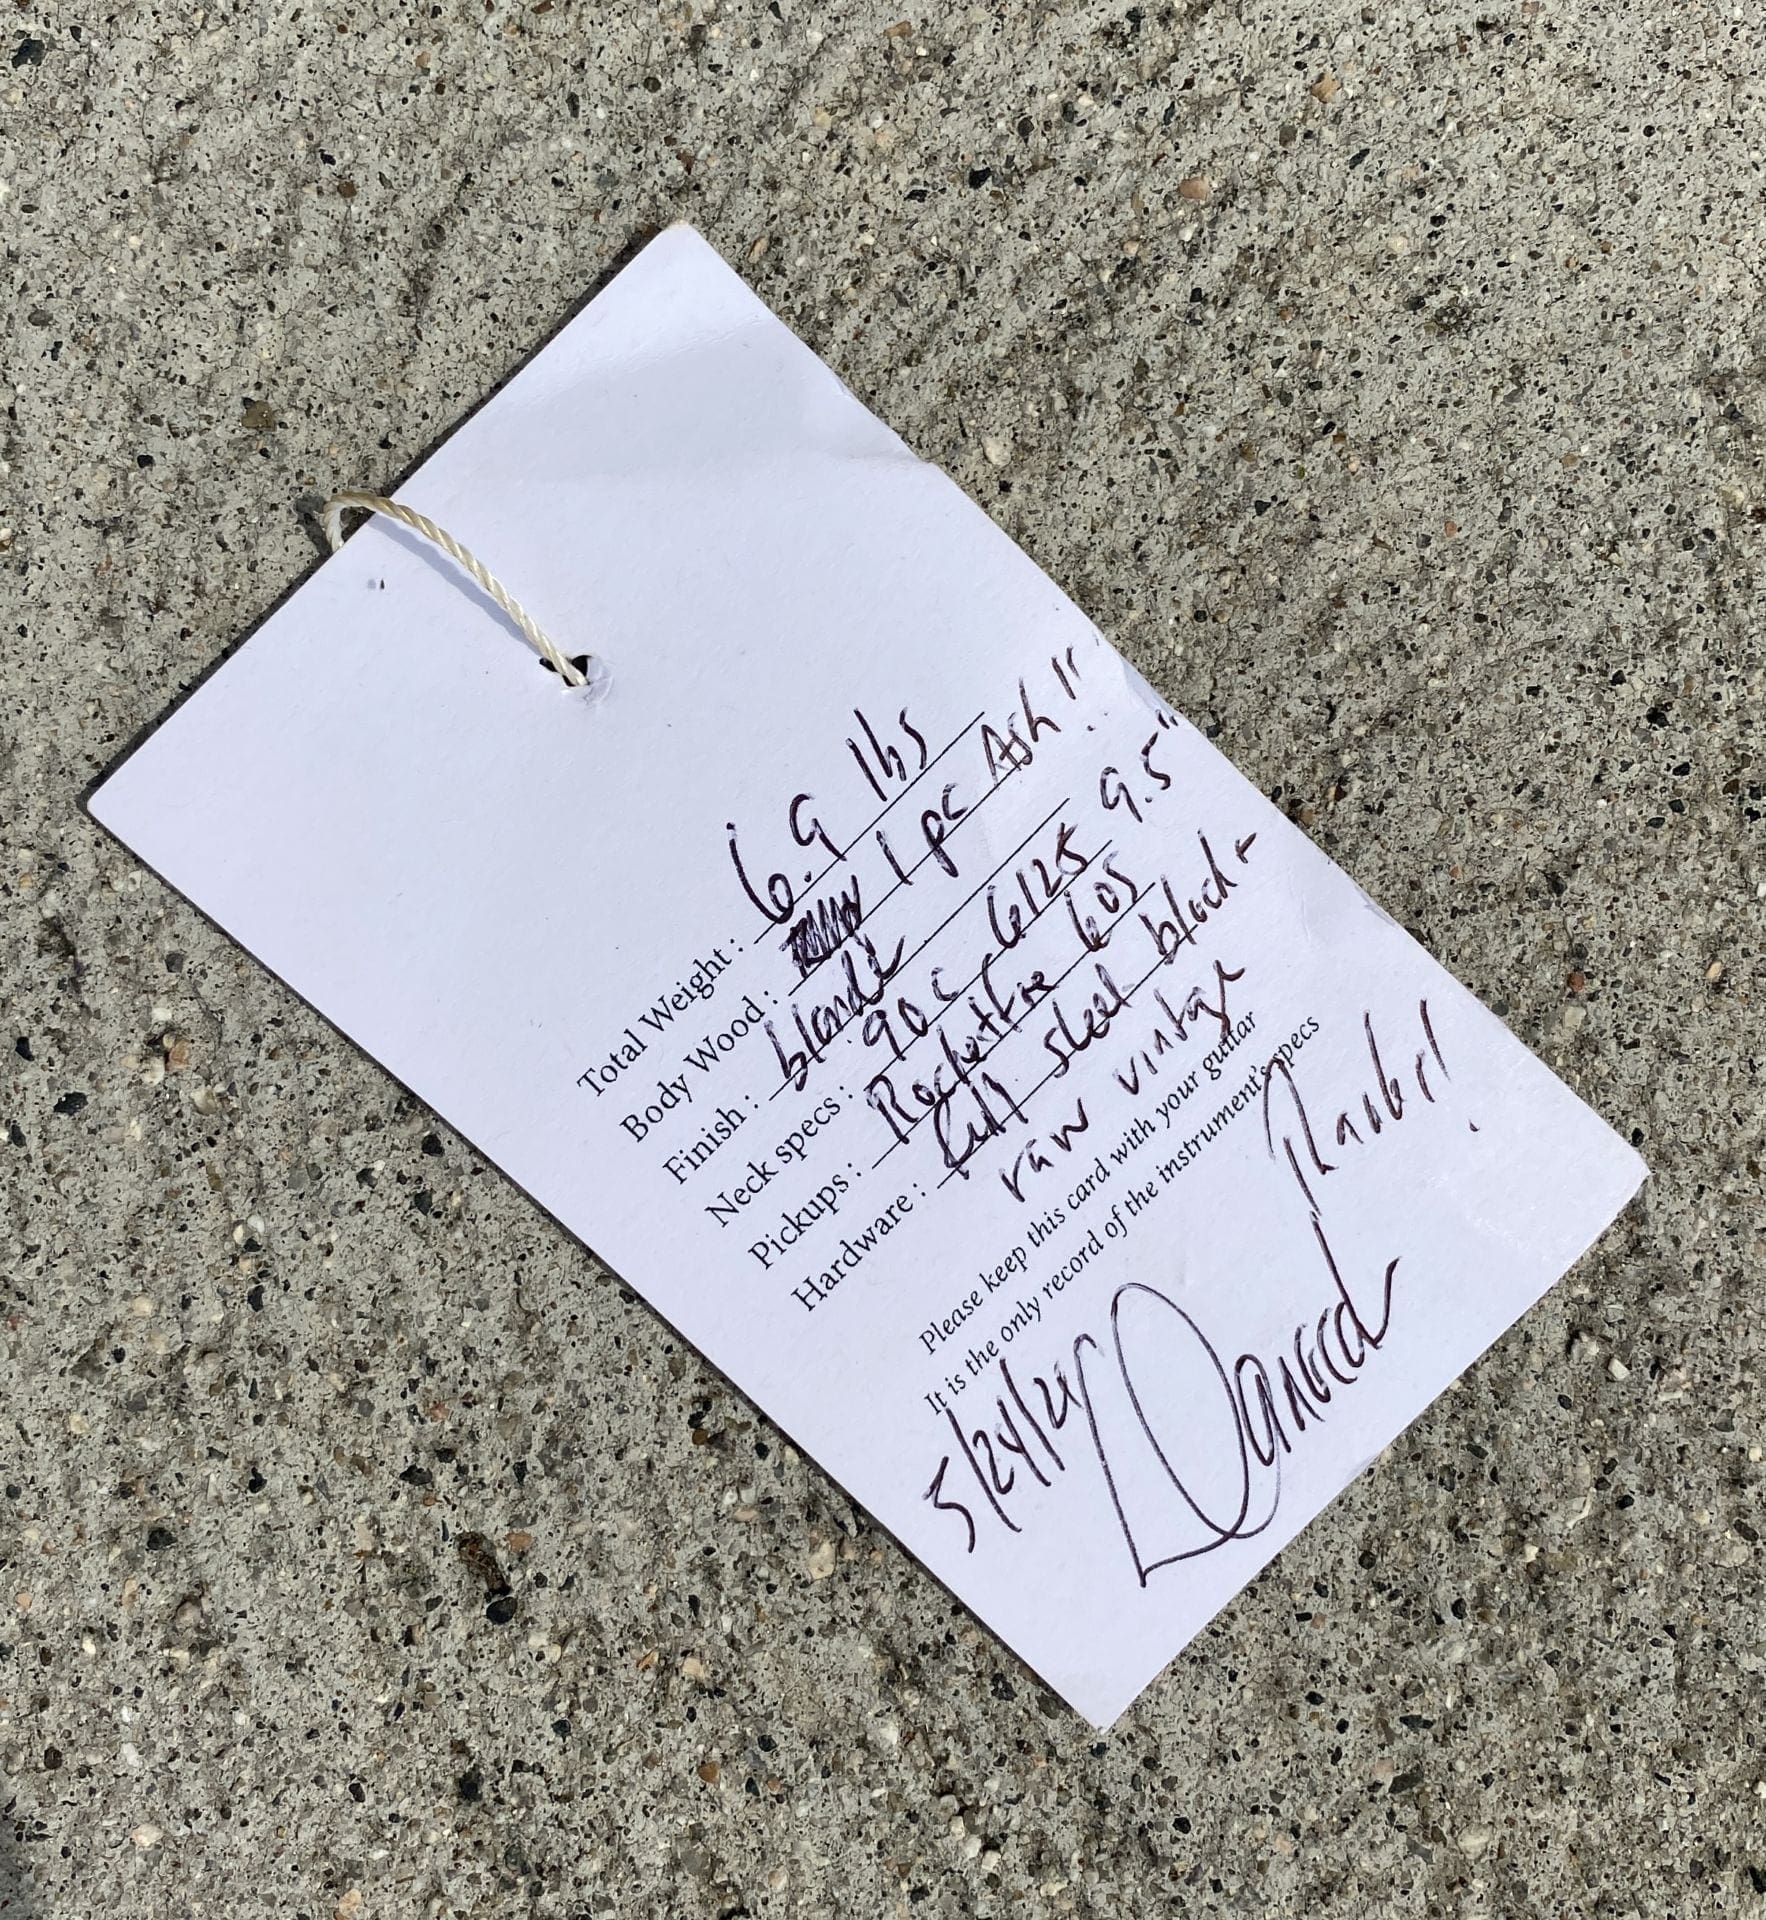 Total Weight : 6.9 lbs
Body Wood : 1 pc Ash !!
Finish : blonde
Neck specs : .90 C 6125 9.5"
Pickups : Rocketfire 605
Hardware : full steel block +
raw vintage
Please keep this card with your guitar
It is the only record of the instrument's specs
Thanks!
5/24/21